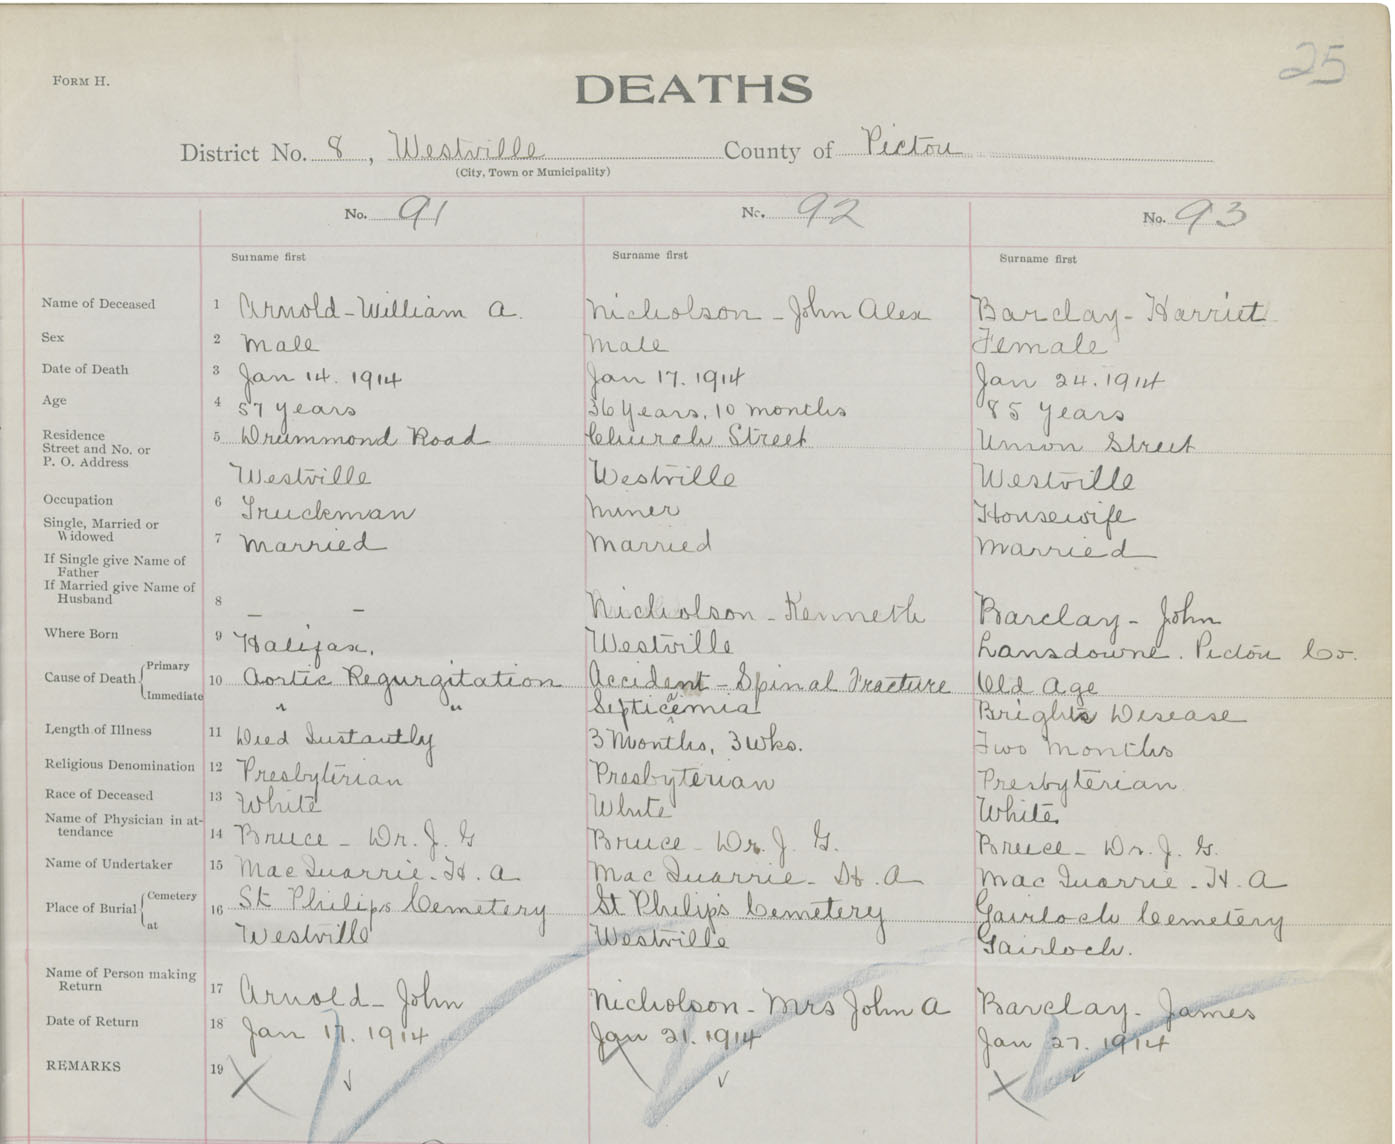 25
FORM H.
DEATHS
District No. 8, Westville County of Pictou
(City, Town or Municipality)
No. 91 No. 92 No. 93
Surname first Surname first Surname first
Name of Deceased 1 Arnold - William A. Nicholson - John Alex Barclay - Harriet
Sex 2 Male Male Female
Date of Death 3 Jan 14. 1914 Jan 17. 1914 Jan 24. 1914
Age 4 57 years 36 Years, 10 months 85 Years
Residence 5 Drummond Road Church Street Union Street
Street and No. or
P. O. Address Westville Westville Westville
Occupation 6 Truckman Miner Housewife
Single, Married or
Widowed 7 Married Married Married
If Single give Name of
Father
If Married give Name of
Husband 8 – – Nicholson - Kenneth Barclay - John
Where Born 9 Halifax. Westville Lansdowne. Pictou Co.
Cause of Death { Primary 10 Aortic Regurgitation Accident - Spinal Fracture Old Age
Immediate " " Septicemia Brights Disease
Length of Illness 11 Died Instantly 3 Months, 3 wks. Two months
Religious Denomination 12 Presbyterian Presbyterian Presbyterian
Race of Deceased 13 White White White
Name of Physician in at-
tendance 14 Bruce - Dr. J. G Bruce - Dr. J. G. Bruce - Dr. J. G.
Name of Undertaker 15 MacQuarrie - H. A MacQuarrie - H. A MacQuarrie - H. A
Place of Burial { Cemetery 16 St Philips Cemetery St Philips Cemetery Gairloch Cemetery
at Westville Westville Gairloch.
Name of Person making
Return 17 Arnold - John Nicholson - Mrs John A Barclay - James
Date of Return 18 Jan 17. 1914 Jan 21. 1914 Jan 27. 1914
REMARKS 19